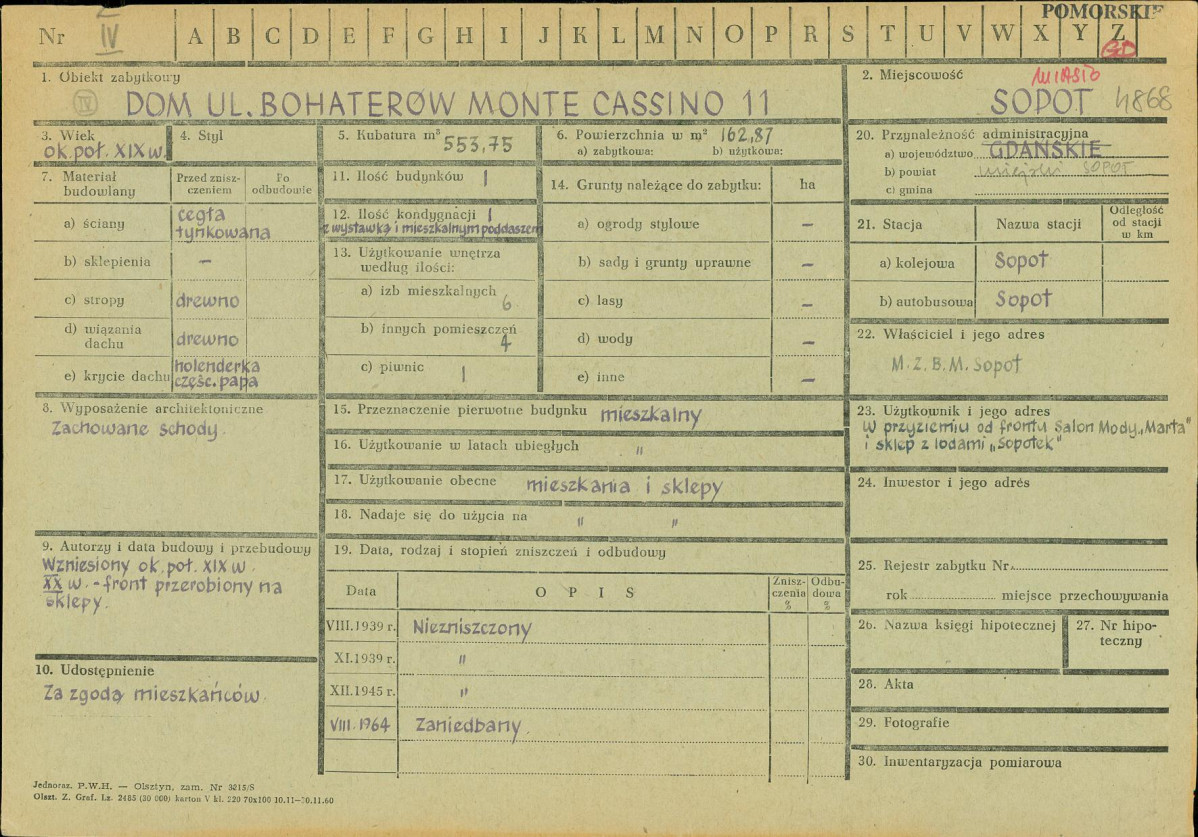 POMORSKIE
Nr IV A B C D E F G H I J K L M N O P R S T U V W X Y Z
GD
1. Obiekt zabytkowy
IV DOM UL. BOHATERÓW MONTE CASSINO 11
2. Miejscowość
MIASTO
SOPOT 4868
3. Wiek
ok. poł. XIX w.
4. Styl
5. Kubatura m³ 553,75
6. Powierzchnia w m² 162,87
a) zabytkowa: b) użytkowa:
20. Przynależność administracyjna
a) województwo GDAŃSKIE
b) powiat miejski SOPOT
c) gmina
7. Materiał budowlany
Przed zniszczeniem
Po odbudowie
a) ściany cegła tynkowana
b) sklepienia –
c) stropy drewno
d) wiązania dachu drewno
e) krycie dachu holenderka częśc. papa
11. Ilość budynków 1
12. Ilość kondygnacji 1
z wystawką i mieszkalnym poddaszem
13. Użytkowanie wnętrza według ilości:
a) izb mieszkalnych 6
b) innych pomieszczeń 4
c) piwnic 1
14. Grunty należące do zabytku: ha
a) ogrody stylowe –
b) sady i grunty uprawne –
c) lasy –
d) wody –
e) inne –
21. Stacja
Nazwa stacji
Odległość od stacji w km
a) kolejowa Sopot
b) autobusowa Sopot
22. Właściciel i jego adres
M.Z.B.M. Sopot
8. Wyposażenie architektoniczne
Zachowane schody.
15. Przeznaczenie pierwotne budynku mieszkalny
16. Użytkowanie w latach ubiegłych "
17. Użytkowanie obecne mieszkania i sklepy
18. Nadaje się do użycia na " "
23. Użytkownik i jego adres
W przyziemiu od frontu Salon Mody „Marta"
i sklep z lodami „Sopotek"
24. Inwestor i jego adres
9. Autorzy i data budowy i przebudowy
Wzniesiony ok. poł. XIX w.
XX w. - front przerobiony na
sklepy.
19. Data, rodzaj i stopień zniszczeń i odbudowy
Data
OPIS
Zniszczenia %
Odbudowa %
VIII.1939 r. Niezniszczony
XI.1939 r. "
XII.1945 r. "
VIII.1964 Zaniedbany
25. Rejestr zabytku Nr
rok miejsce przechowywania
26. Nazwa księgi hipotecznej
27. Nr hipoteczny
28. Akta
29. Fotografie
30. Inwentaryzacja pomiarowa
10. Udostępnienie
Za zgodą mieszkańców.
Jednoraz. P.W.H. — Olsztyn, zam. Nr 3215/S
Olszt. Z. Graf. Lz. 2485 (30 000) karton V kl. 220 70x100 10.11—30.11.60